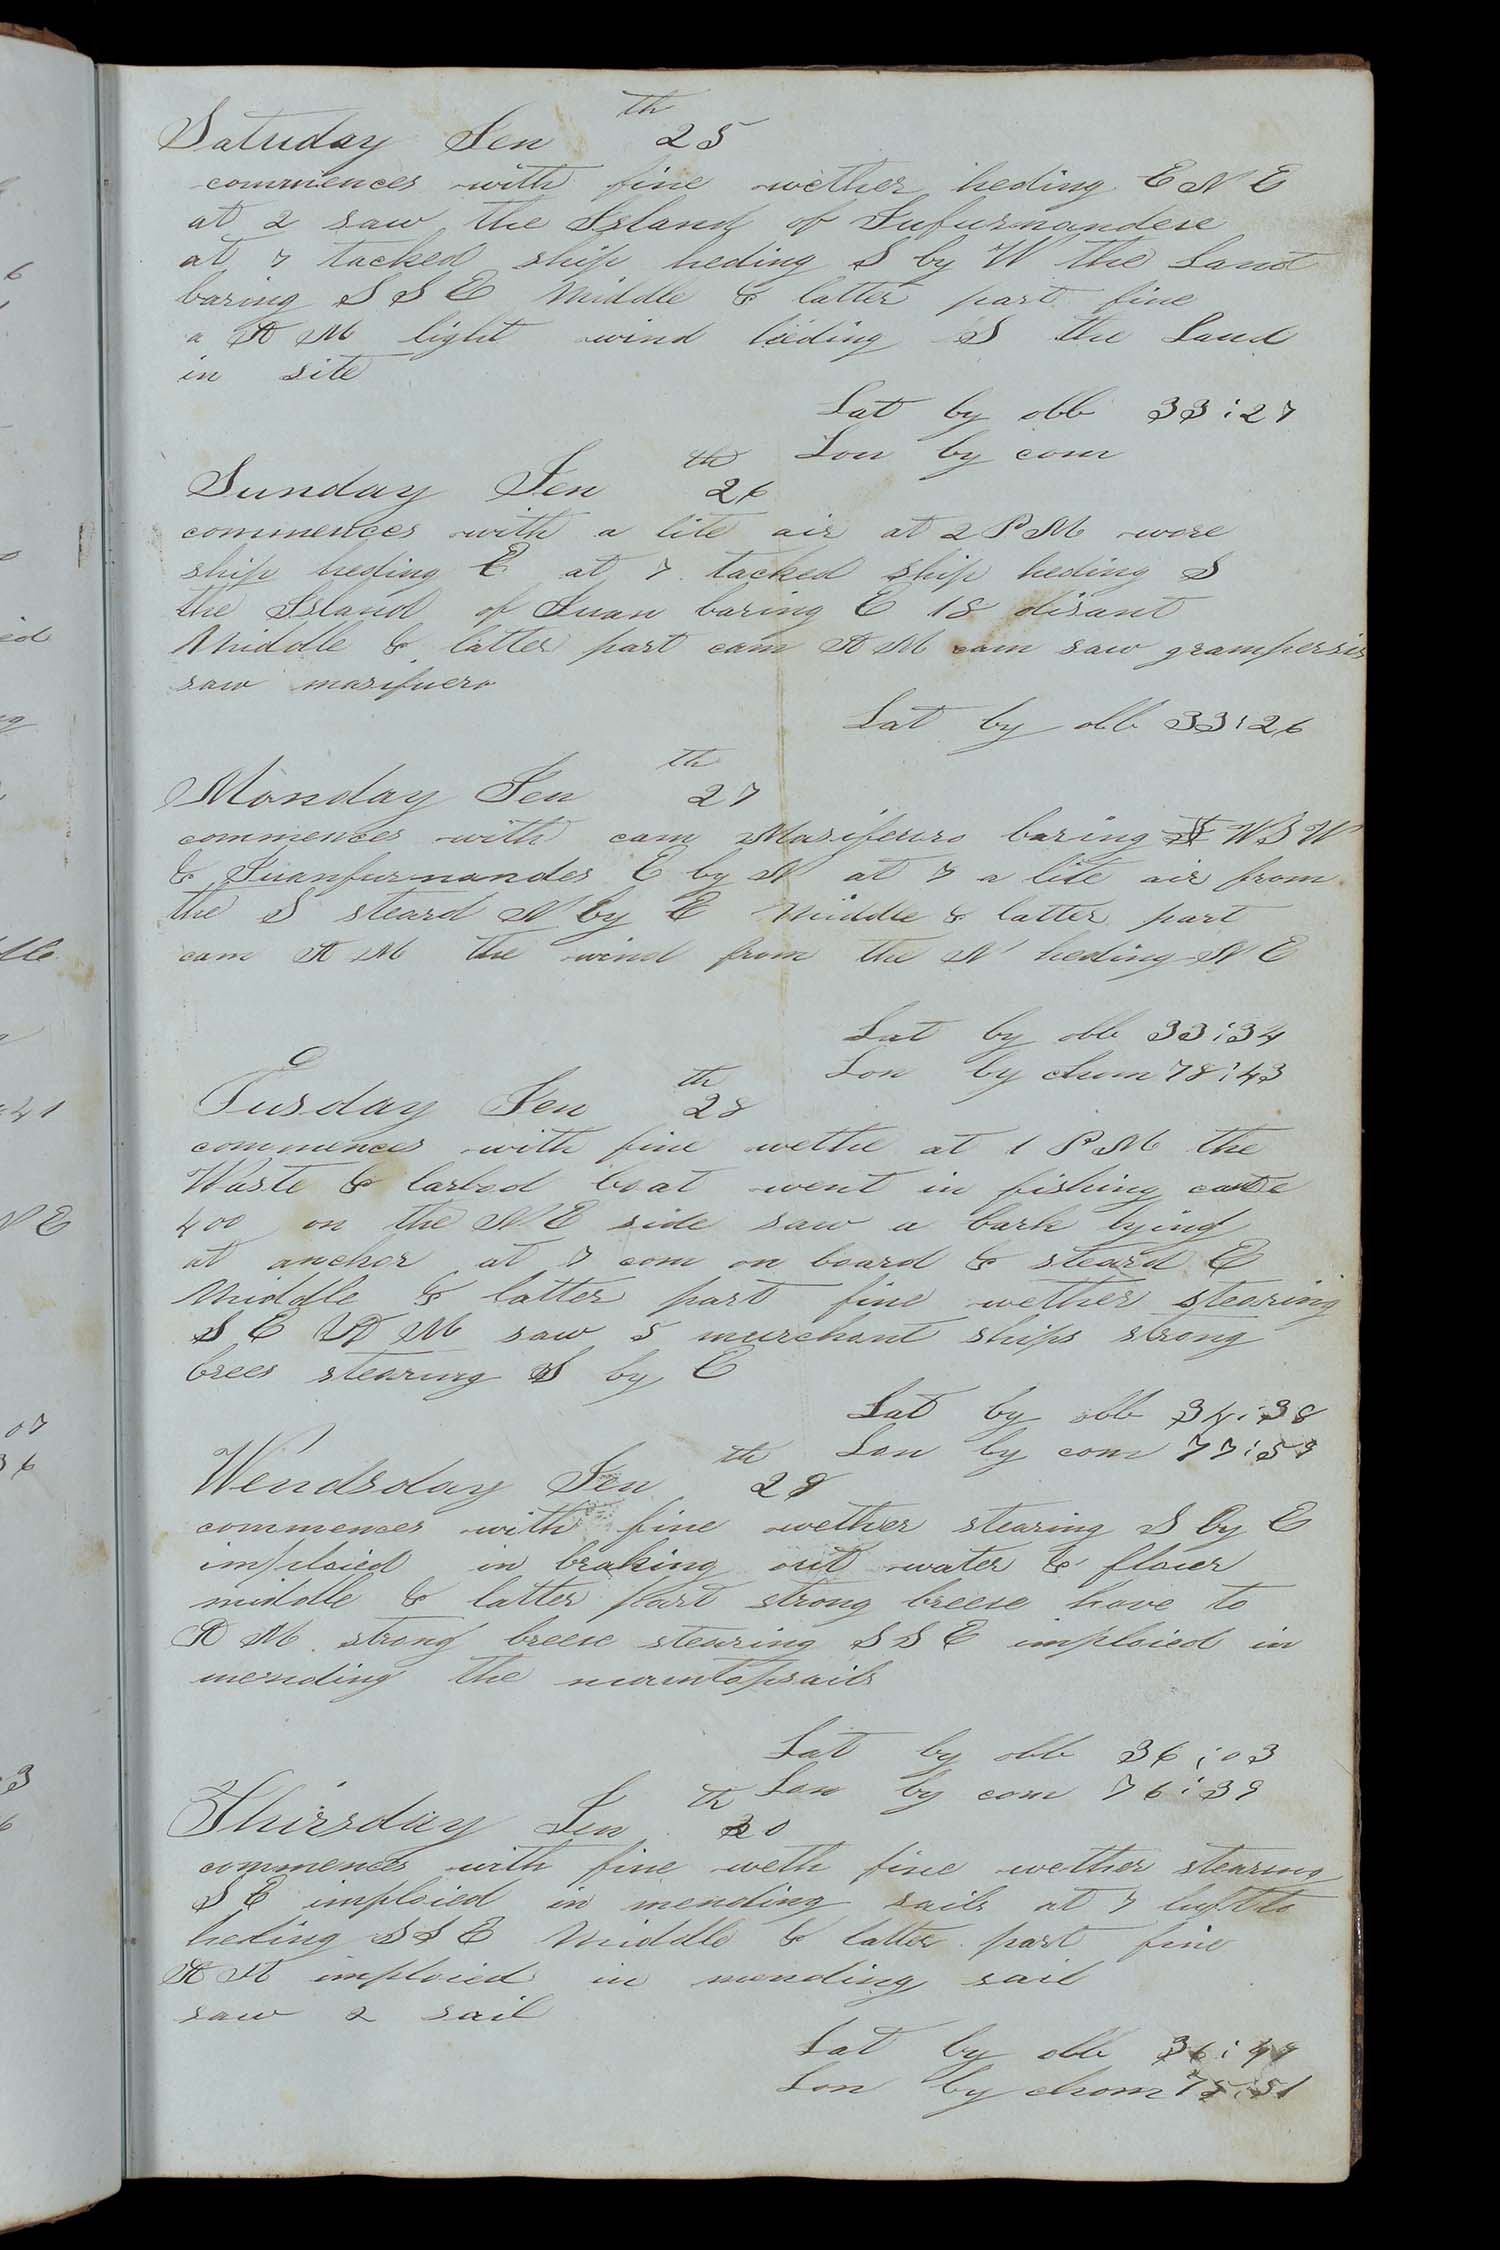 Satuday Jen 25th
commences with fine wether heding E N E
at 2 saw the Island of Jufurnandese
at 7 tacked ship heding S by W the Land
baring S S E Middle & latter part fine
a A M light wind heding S the Land
in site
Lat by obb 33:27
Lon by com
Sunday Jen 26th
commences with a lite air at 2 P M wore
ship heding E at 7 tacked ship heding S
the Island of Juan baring E 18 disant
Middle & latter part cam A M cam saw
saw masifuero
Lat by obb 33:26
Monday Jen 27th
commences with cam Masifeuro baring W S W
& Juanfurnandes E by N at 7 a lite air from
the S steard N by E Middle & latter part
cam A M the wind from the N heding N E
Lat by obb 33:34
Lon by chum 78:43
Tusday Jen 28th
commences with fine wethe at 1 P M the
Waste & larbod boat went in fishing
400 on the N E side saw a bark lying
at anchor at 7 com on board & steard E
Middle & latter part fine wether stearing
S E A M saw 5 murchant ships strong
brees stearing S by E
Lat by obb 34:38
Lon by com 77:59
Wendsday Jen 29th
commences with fine wether stearing S by E
imploied in braking out water & flouer
middle & latter part strong breese have to
A M strong breese stearing S S E imploied in
mending the maintopsails
Lat by obb 36:03
Lon by com 76:39
Thirsday Jen 30th
commences with fine weth fine wether stearing
S E imploied in mending sails at 7 luft to
heding S S E Middle & latter part fine
A M imploied in mending sail
saw 2 sail
Lat by obb 36:49
Lon by chrom 75:51